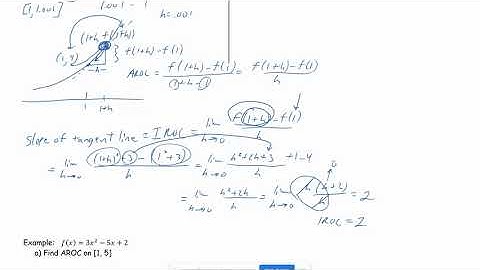 [1, 1.001] 1.001 - 1 h=.001
(1+h, f(1+h))
(1, 4) } f(1+h)-f(1)
-h-
AROC = f(1+h)-f(1) / 1+h-1 = f(1+h)-f(1) / h
1 1+h
Slope of tangent line = IROC = lim h→0 f(1+h)-f(1) / h
= lim h→0 (1+h)²+3-(1²+3) / h = lim h→0 h²+2h+3+1-4 / h
= lim h→0 h²+2h / h = lim h→0 h(h+2) / h = 2
0
IROC = 2
Example: f(x) = 3x² − 5x + 2
a) Find AROC on [1, 5]